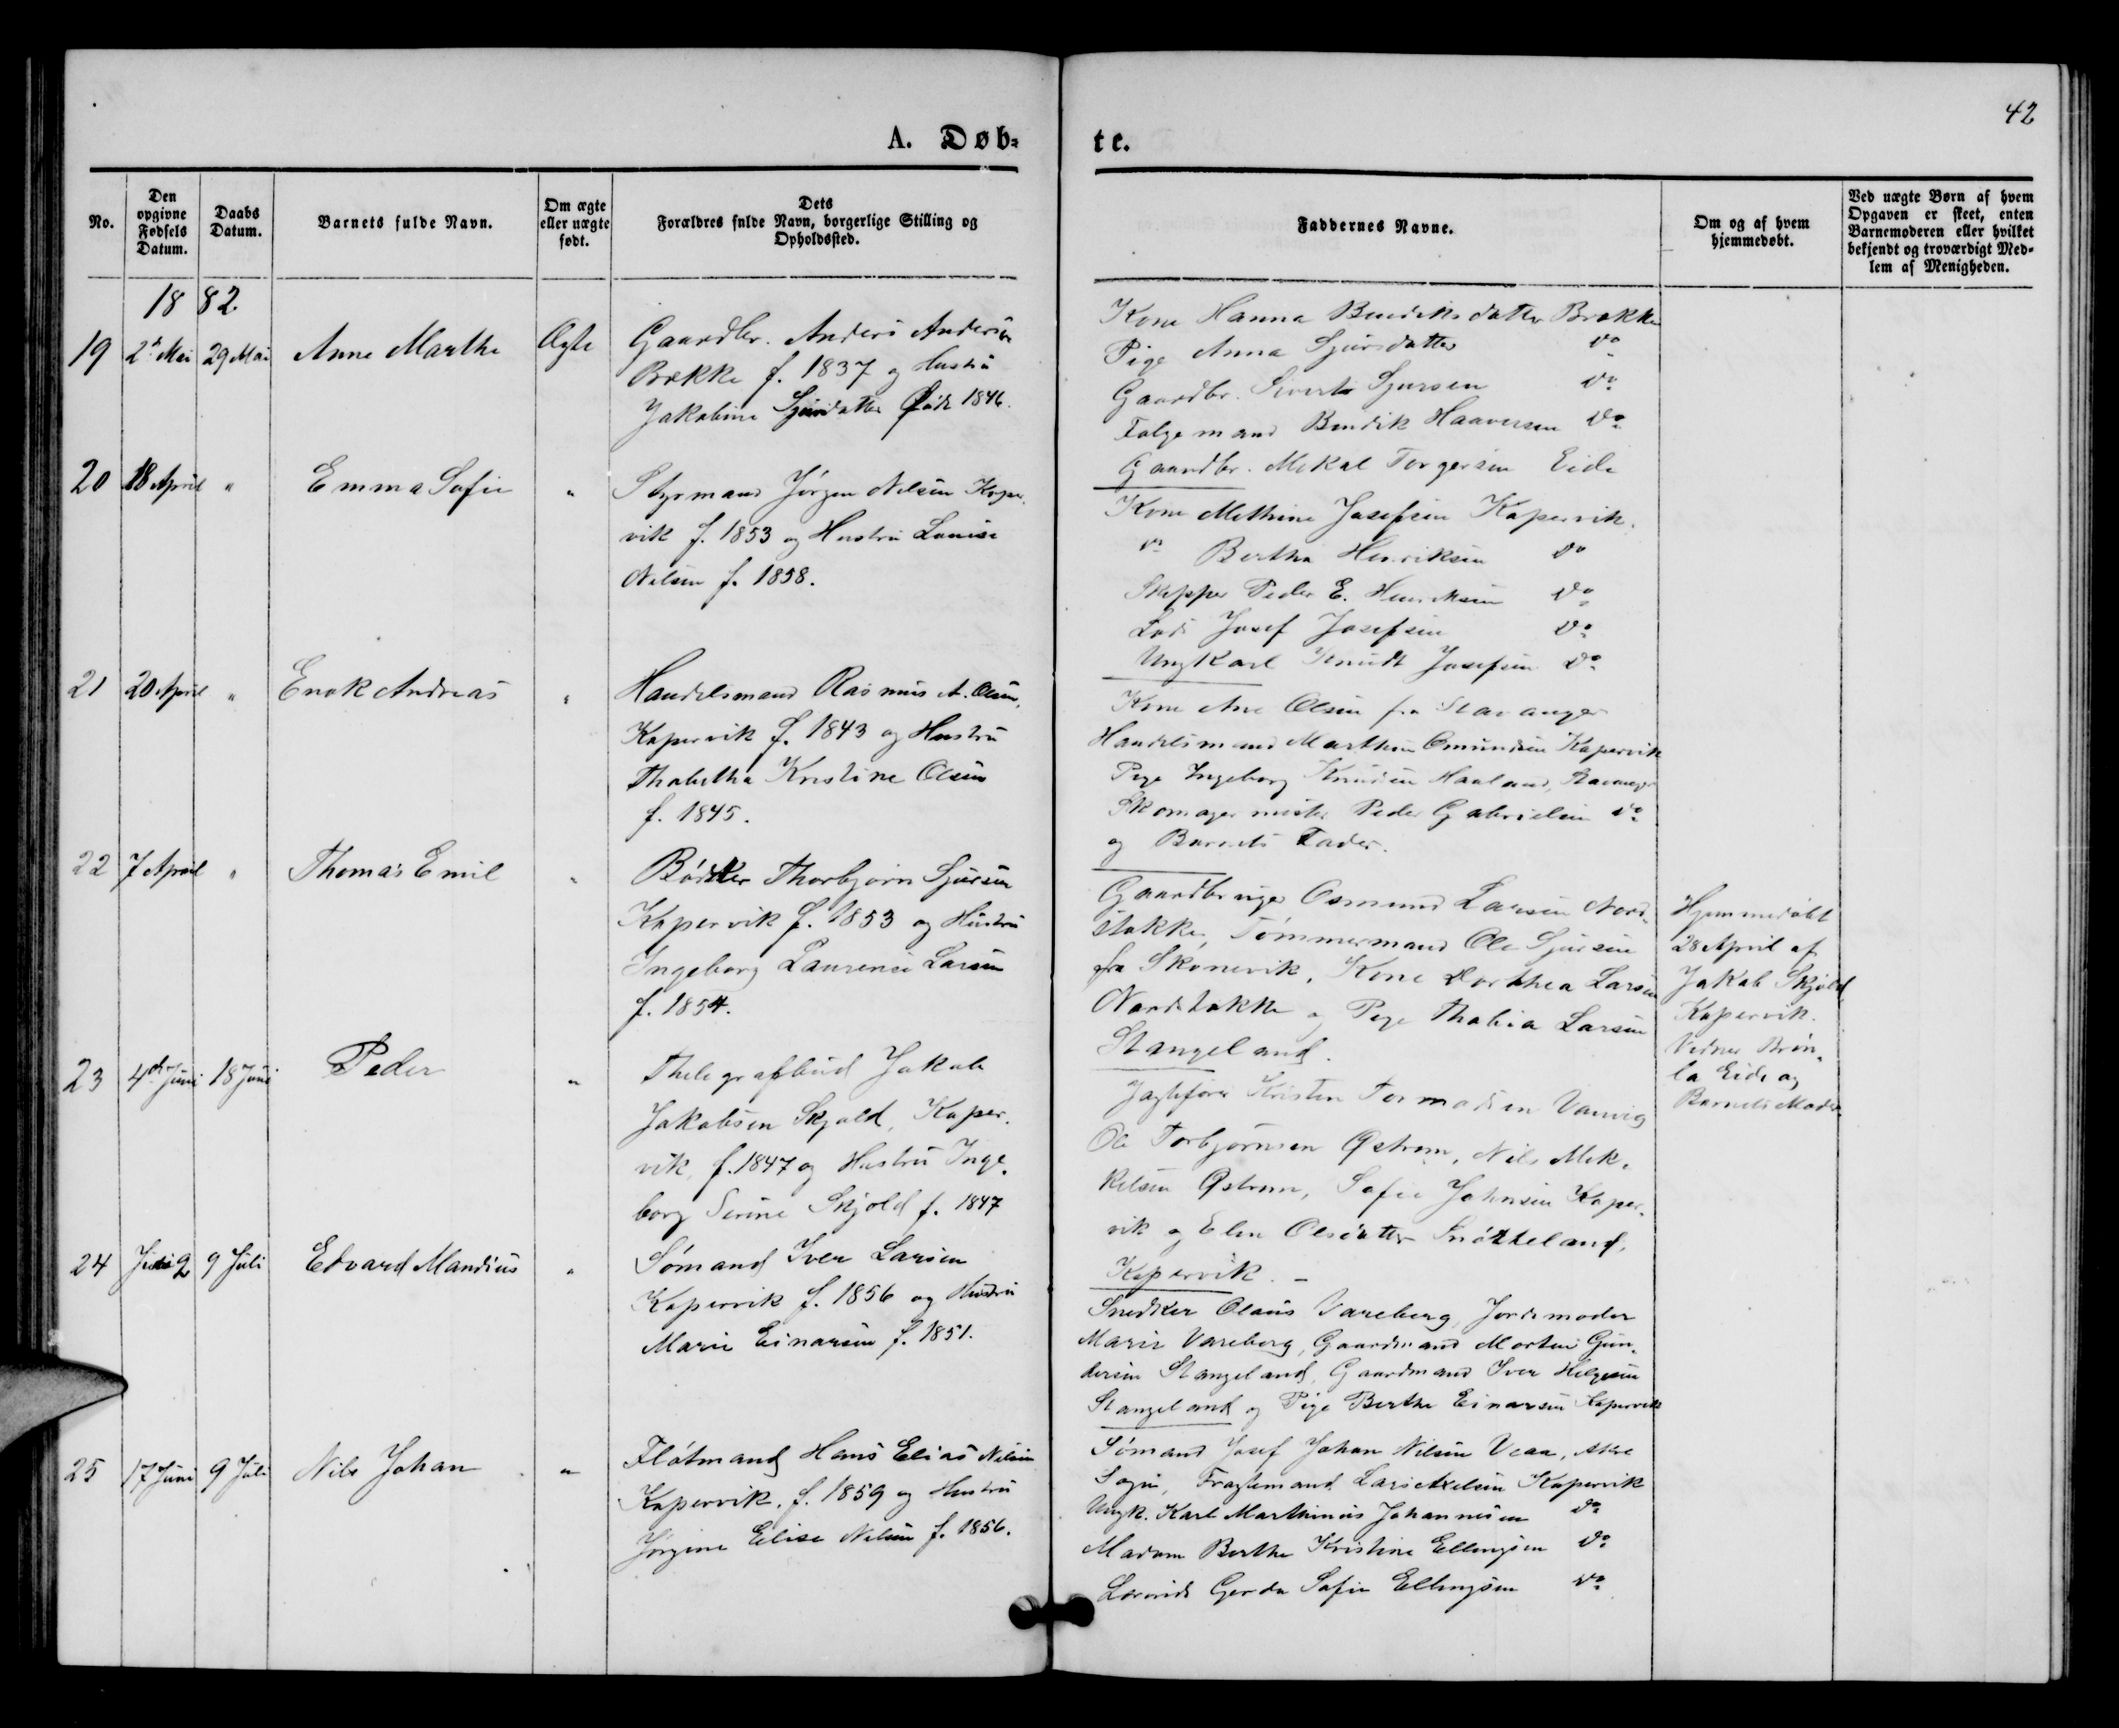 42
A. Døb-
te.
No.
Den opgivne Fødsels Datum.
Daabs Datum.
Barnets fulde Navn.
Om ægte eller uægte født.
Dets Forældres fulde Navn, borgerlige Stilling og Opholdssted.
Faddernes Navne.
Om og af hvem hjemmedøbt.
Ved uægte Børn af hvem Opgaven er skeet, enten Barnemoderen eller hvilket bekjendt og troværdigt Medlem af Menigheden.
1882.
19 2den Mai 29 Mai Anne Marthe Ægte
Gaardbr. Anders Andersen
Brække f. 1837 og Hustru
Jakobine Sjursdatter Født 1846.
Kone Hanna Bendiksdatter Brække
Pige Anna Sjursdatter do
Gaardbr. Sivert Sjursen do
Følgemand Bendik Haaversen do
Gaardbr. Mikal Torgersen Eide
20 18 April " Emma Sofie "
Styrmand Jørgen Nilsen Koper-
vik f. 1853 og Hustru Louise
Nilsen f. 1858.
Kone Methine Josefsen Kopervik.
do Bertha Henriksen do
Skipper Peder E. Henriksen do
Lods Josef Josefsen do
Ungkarl Knudt Josefsen do
21 20 April " Enok Andreas "
Handelsmand Rasmus A. Olsen,
Kopervik f. 1843 og Hustru
Thabitha Kristine Olsen
f. 1845.
Kone Ane Olsen fra Stavanger
Handelsmand Marthin Omundsen Kopervik
Pige Ingeborg Knudsen Haaland, Stavanger
Skomagermester Peder Gabrielsen do
og Barnets Fader.
22 7 April " Thomas Emil "
Bødker Thorbjørn Sjursen
Kopervik f. 1853 og Hustru
Ingeborg Laurense Larsen
f. 1854.
Gaardbruger Osmund Larsen Nord-
stokke, Tømmermand Ole Sjursen
fra Skonevik, Kone Dorthea Larsen
Nordstokke og Pige Thabia Larsen
Stangeland.
Hjemmedøbt
28 April af
Jakob Skjold
Kopervik.
Vidner
Eide og
Barnets Moder.
23 4de Juni 18 Juni Peder "
Thelegrafbud Jakob
Jakobsen Skjold, Koper-
vik, f. 1847 og Hustru Inge-
borg Serine Skjold f. 1847
Jagtefører Kristen Tormodsen Vanvig
Ole Torbjørnsen Østrem, Nils Mik-
kelsen Østrem, Sofie Johnsen Koper-
vik og Elen Olsdatter Snørteland,
Kopervik. –
24 Juni 2 9 Juli Edvard Mandius "
Sømand Iver Larsen
Kopervik f. 1856 og Hustru
Marie Einarsen f. 1851.
Snedker Olaus Vareberg, Jordemoder
Marie Vareberg, Gaardmand Morten Gun-
dersen Stangeland, Gaardmand Iver Helgesen
Stangeland og Pige Berthe Einarsen Kopervik
25 17 Juni 9 Juli Nils Johan "
Fløtmand Hans Elias Nilsen
Kopervik. f. 1859 og Hustru
Jørgine Elise Nilsen f. 1856.
Sømand Josef Johan Nilsen Veaa,
Sogn, Fragtemand Lars Axelsen Kopervik
Ungk. Karl Marthinus Johannesen do
Madam Berthe Kristine Ellingsen do
Gerda Sofie Ellingsen do